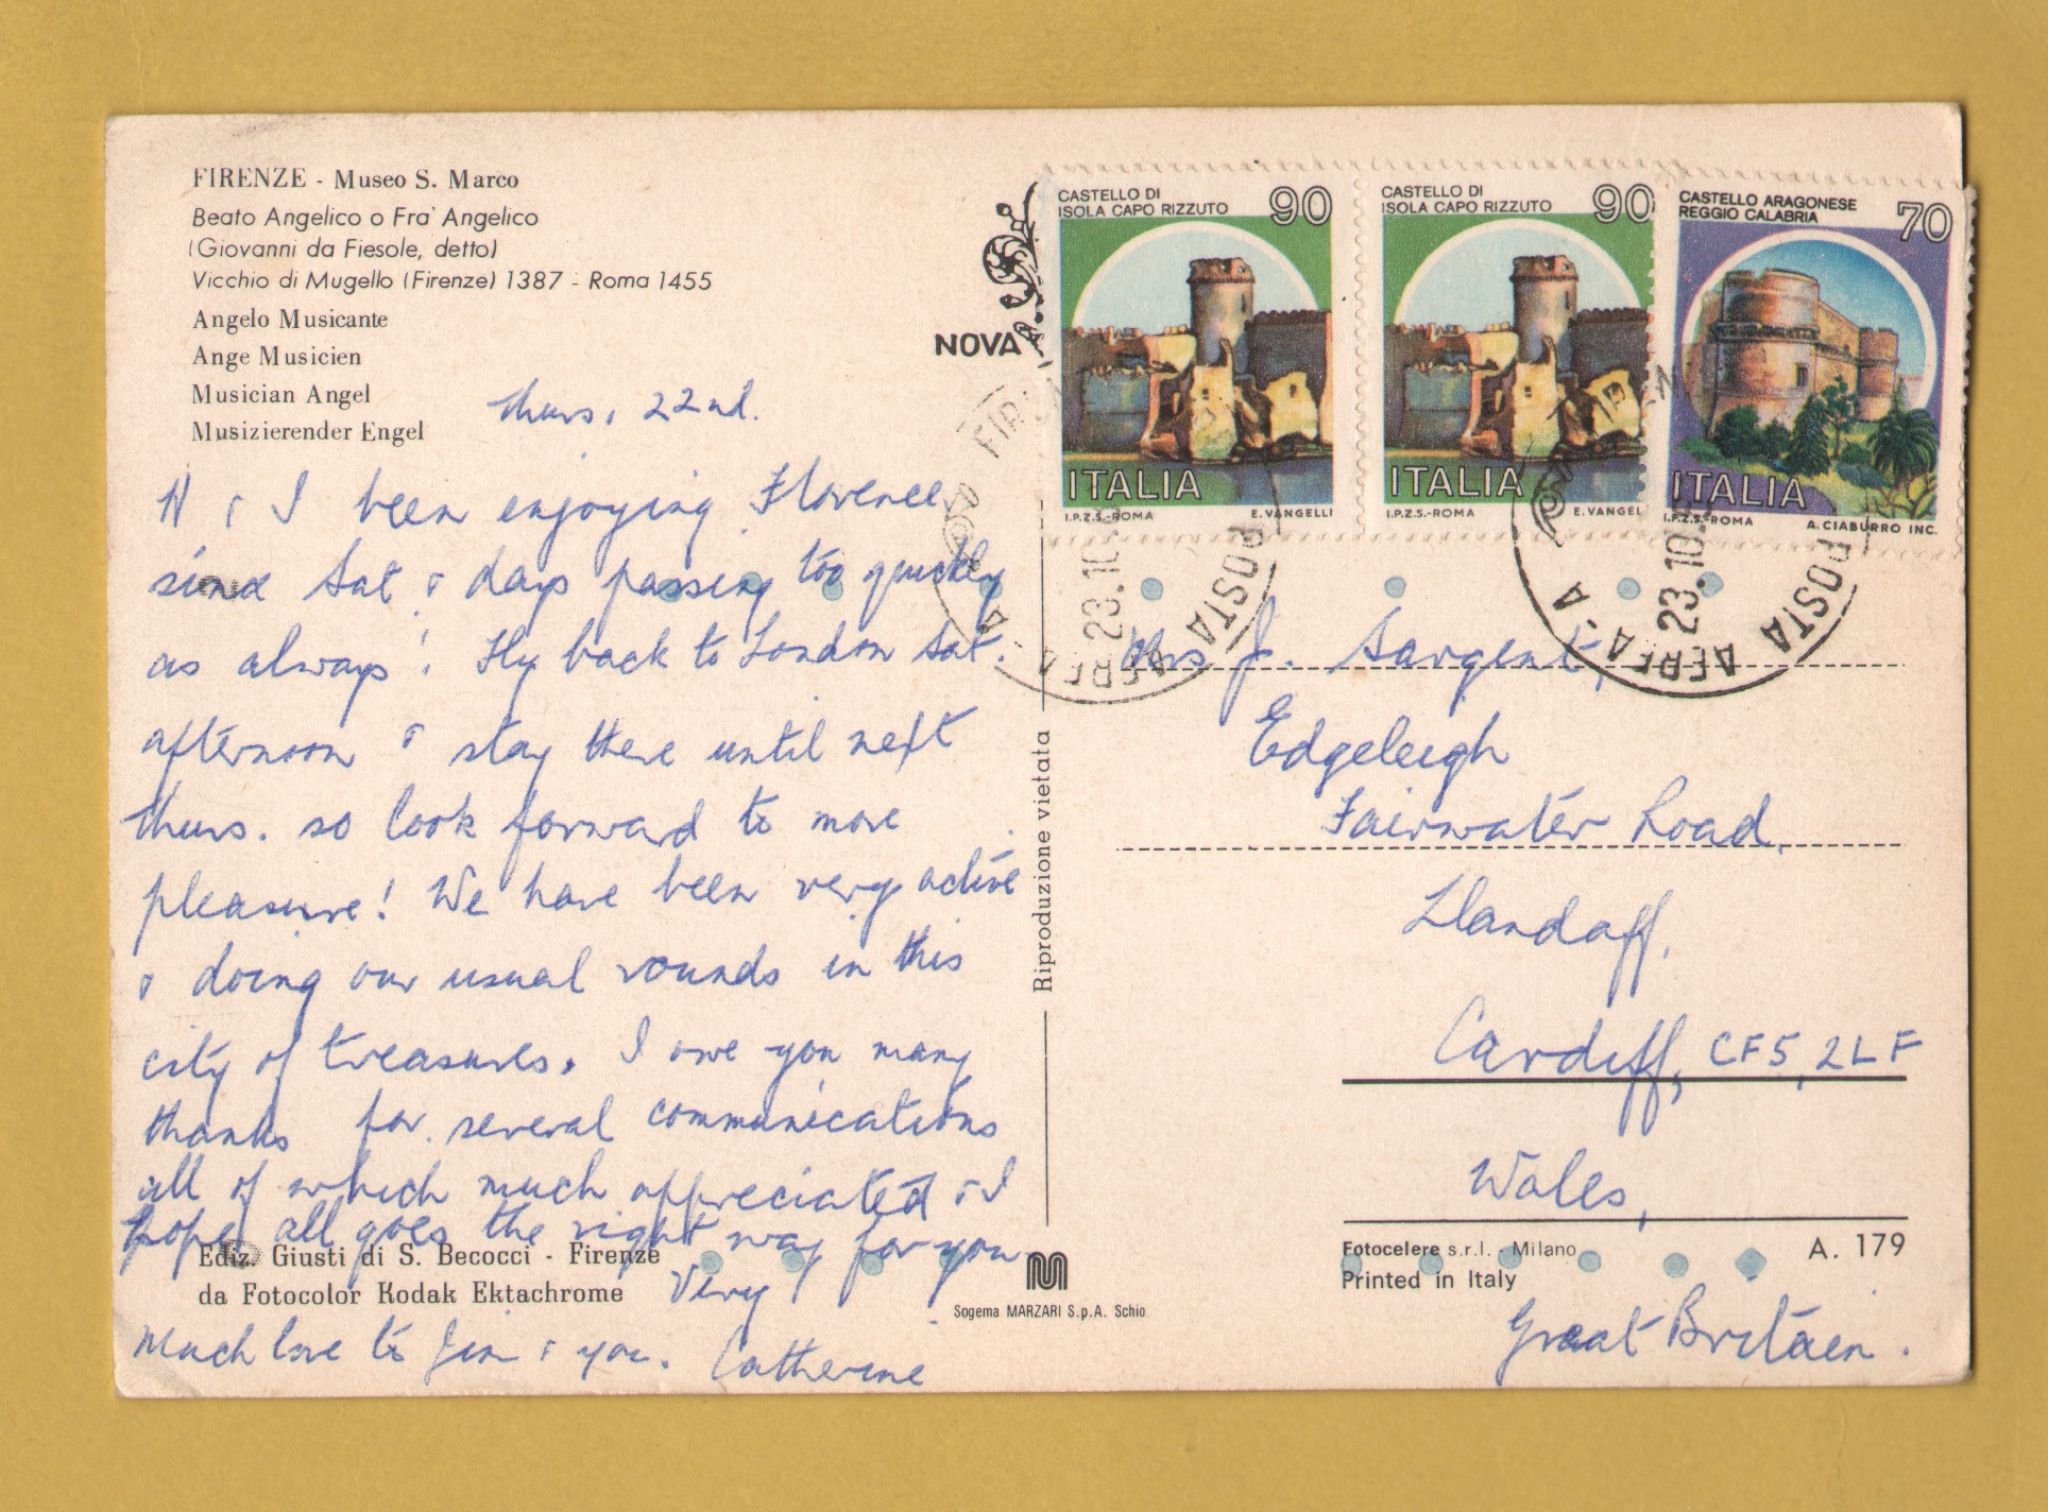 FIRENZE - Museo S. Marco
Beato Angelico o Fra' Angelico
(Giovanni da Fiesole, detto)
Vicchio di Mugello (Firenze) 1387 - Roma 1455
Angelo Musicante
Ange Musicien
Musician Angel
Musizierender Engel
Thurs. 22nd.
N & I been enjoying Florence
since Sat & days passing too quickly
as always! Fly back to London Sat.
afternoon & stay there until next
Thurs. so look forward to more
pleasure! We have been very active
& doing our usual rounds in this
city of treasures. I owe you many
thanks for several communications
all of which much appreciated & I
hope all goes the right way for you.
Very
Much love to Jim & you. Catherine
Ediz. Giusti di S. Becocci - Firenze
da Fotocolor Kodak Ektachrome
Riproduzione vietata
Sogema MARZARI S.p.A. Schio
NOVA
CASTELLO DI
ISOLA CAPO RIZZUTO 90
ITALIA
I.P.Z.S.-ROMA E. VANGELLI
CASTELLO DI
ISOLA CAPO RIZZUTO 90
ITALIA
I.P.Z.S.-ROMA E. VANGEL
CASTELLO ARAGONESE
REGGIO CALABRIA 70
ITALIA
I.P.Z.S.-ROMA A. CIABURRO INC.
23.10
POSTA AEREA
23.10
POSTA AEREA
Mrs J. Sargent,
Edgeleigh
Fairwater Road,
Llandaff,
Cardiff, CF5, 2LF
Wales,
Fotocelere s.r.l. - Milano
Printed in Italy
A. 179
Great Britain.